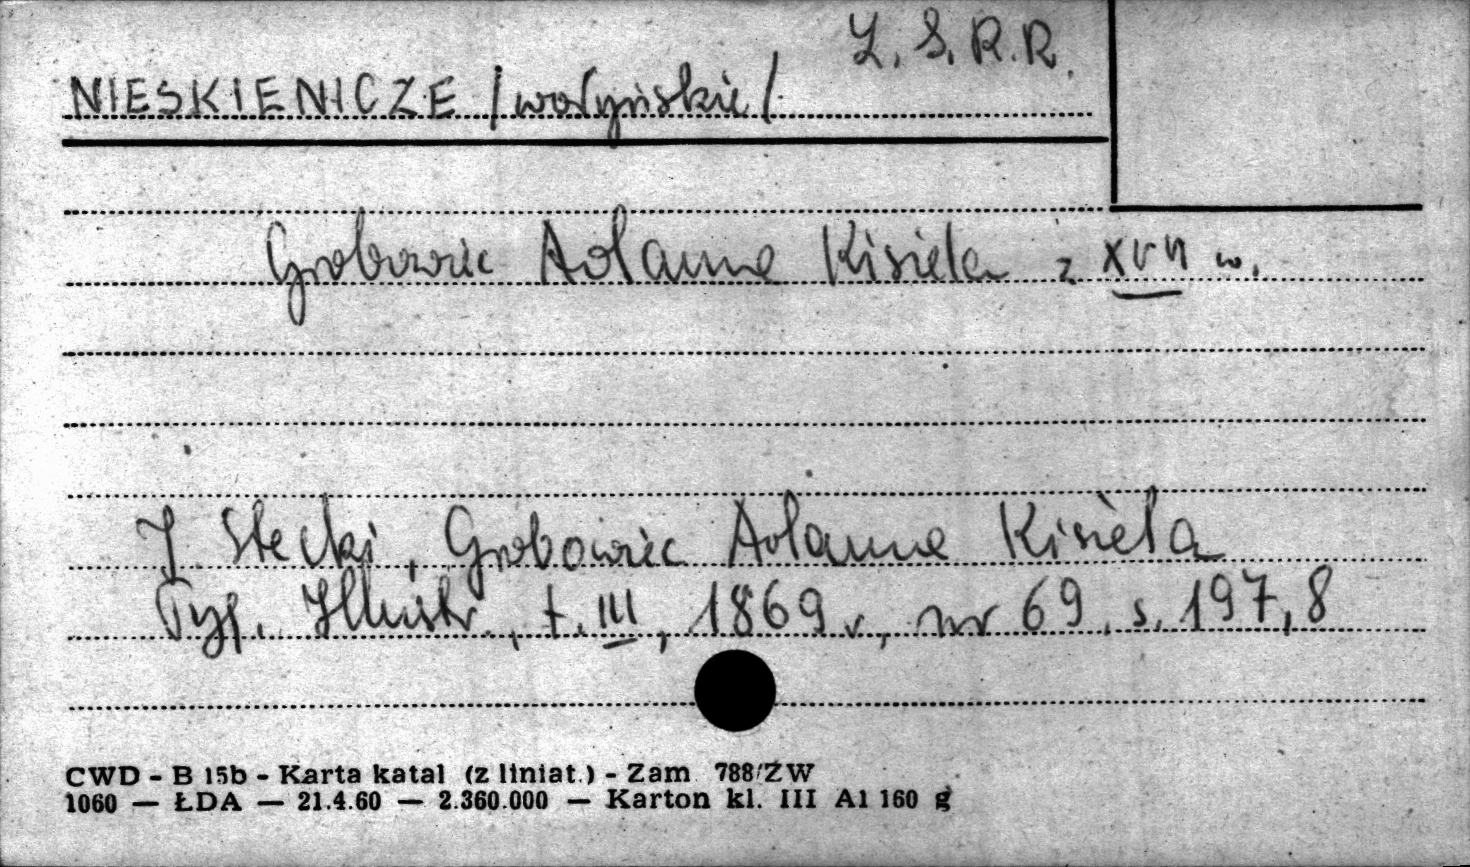 Z.S.R.R.
NIESKIENICZE /wołyńskie/
Grobowiec Adama Kisiela z XVII w.
J. Stecki, Grobowiec Adama Kisiela
Tyg. Illustr., t. III, 1869 r, nr 69, s. 197,8
CWD - B 15b - Karta katal (z liniat.) - Zam 788/ZW
1060 — ŁDA — 21.4.60 — 2.360.000 — Karton kl. III A1 160 g